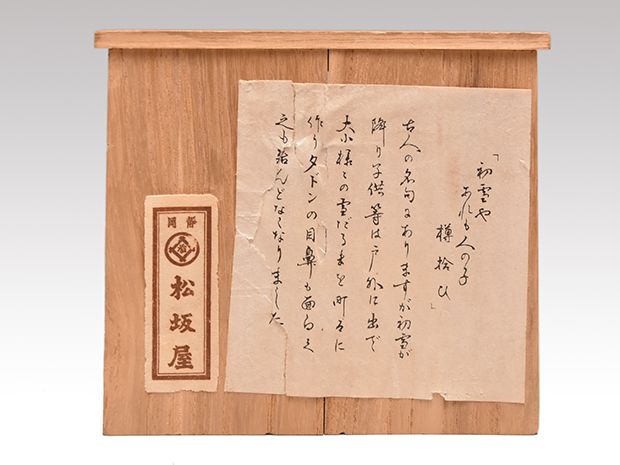 「初雪や
あれも人の子
樽拾ひ」
古人の名句にありますが初雪が
降り子供等は戸外に出で
大小様々の雪だるまを町々に
作りタドンの目鼻も面白く
之も殆んどなくなりました
静岡
松坂屋